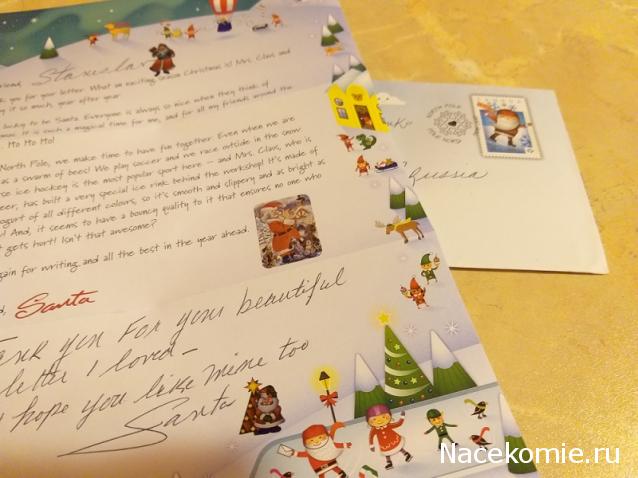 riend, Stanislav
k you for your letter. What an exciting season Christmas is! Mrs. Claus and
y it so much, year after year.
lucky to be Santa. Everyone is always so nice when they think of
It is such a magical time for me, and for all my friends around the
Ho Ho Ho!
North Pole, we make time to have fun together. Even when we are
as a swarm of bees! We play soccer and we race outside in the snow.
rse ice hockey is the most popular sport here – and Mrs. Claus, who is
eer, has built a very special ice rink behind the workshop! It's made of
ogurt of all different colours, so it's smooth and slippery and as bright as
And, it seems to have a bouncy quality to it that ensures no one who
gets hurt! Isn't that awesome?
gain for writing and all the best in the year ahead.
d, Santa
ank you For your beautiful
letter I loved –
hope you like mine too
Santa
NORTH POLE
Russia
Nacekomie.ru